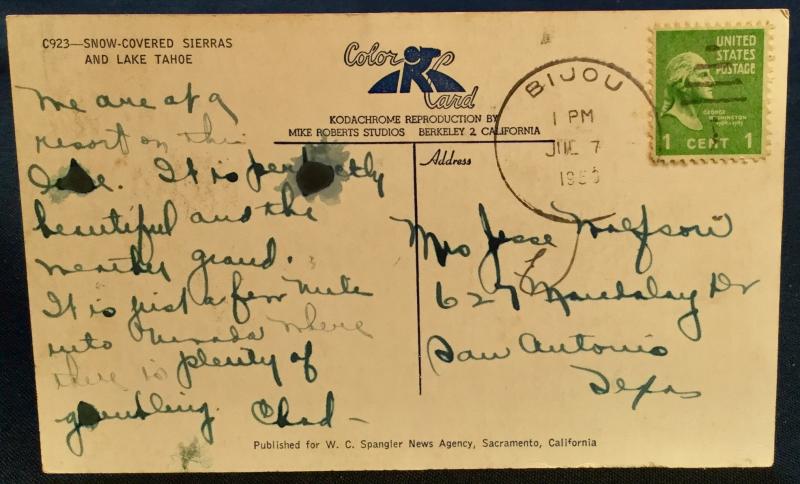 C923—SNOW-COVERED SIERRAS
AND LAKE TAHOE
Color
Card
KODACHROME REPRODUCTION BY
MIKE ROBERTS STUDIOS BERKELEY 2, CALIFORNIA
BIJOU
1 PM
7
UNITED
STATES
POSTAGE
GEORGE
WASHINGTON
1 CENT 1
We are at a
resort on this
It is perfectly
beautiful and the
weather grand.
It is just a few
into Nevada where
there is plenty of
gambling. Chad—
Address
Mrs Jesse Wolfson
627 Mandalay Dr
San Antonio
Texas
Published for W. C. Spangler News Agency, Sacramento, California